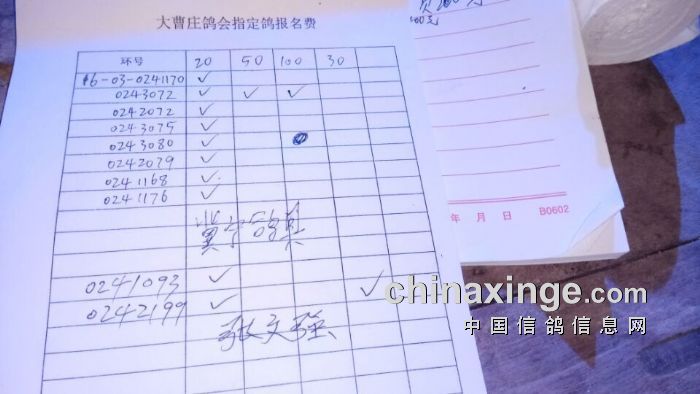 大曹庄鸽会指定鸽报名费
环号 20 50 100 30
16-03-0241170 ✓
0243072 ✓ ✓ ✓
0242072 ✓
0243075 ✓
0243080 ✓
0242079 ✓
0241168 ✓
0241176 ✓
冀宁鸽具
0241093 ✓
0242199 ✓ ✓
张文强
年 月 日 B0602
chinaxinge.com
中国信鸽信息网